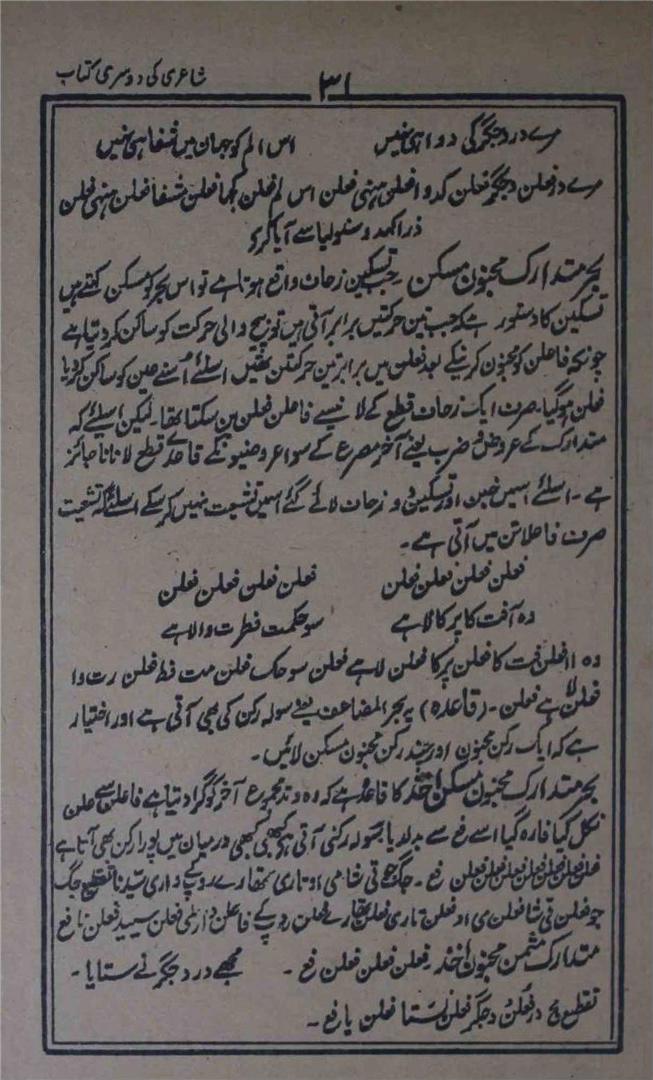 شاعری کی دوسری کتاب
۳۱
مرے درد جگر کی دوا ہی نہیں اس الم کو جہان میں شفا ہی نہیں
مرے در فعلن دجگر فعلن کدوا فعلن ہنہی فعلن اس لم فعلن کجہا فعلن مشفا فعلن ہنہی فعلن
بحر متدارک مخبون مسکن جب تسکین زحاف واقع ہوتا ہے تو اس بحر کو مسکن کہتے ہیں
تسکین کا دستور ہے کہ جب تین حرکتیں برابر آتی ہیں تو بیچ والی حرکت کو ساکن کر دیتا ہے
چونکہ فاعلن کو مخبون کرنیکے بعد فعلن میں برابر تین حرکتیں تھیں اسلئے اُسنے عین کو ساکن کر دیا
فعلن ہو گیا۔ صرف ایک زحاف قطع کے لانیسے فاعلن فعلن بن سکتا تھا۔ لیکن اسلئے کہ
متدارک کے عروض و ضرب یعنے آخر مصرع کے سوا عروضیونکے قاعدے قطع لانا نا جائز
ہے۔ اسلئے اسمیں خبن اور تسکین دو زحاف لائے گئے اسمیں تشعیث نہیں کر سکے اسلئے کہ تشعیث
صرف فاعلاتن میں آتی ہے۔
فعلن فعلن فعلن فعلن فعلن فعلن فعلن فعلن
وہ آفت کا پرکالا ہے سو حکمت فطرت والا ہے
وہ اا فعلن فت کا فعلن پرکا فعلن لا ہے فعلن سو حک فعلن مت فط فعلن رت وا
فعلن لا ہے فعلن۔ (قاعدہ) یہ بحر المضاعف یعنے سولہ رکن کی بھی آتی ہے اور اختیار
ہے کہ ایک رکن مخبون اور چند رکن مخبون مسکن لائیں۔
بحر متدارک مخبون مسکن احذ۔ حذذ کا قاعدہ ہے کہ وہ وتد مجموع آخر کو گرا دیتا ہے فاعلن سے علن
نکل گیا فا رہ گیا اسے فع سے بدلدیا سولہ رکنی آتی ہے کبھی کبھی درمیان میں پورا رکن بھی آتا ہے
فعلن فعلن فعلن فعلن فعلن فعلن فعلن فع۔
متدارک مثمن مخبون احذ۔ فعلن فعلن فعلن فع۔ مجھے درد جگر نے ستایا۔
تقطیع مج در فعلن دجگر فعلن نستا فعلن یا فع۔